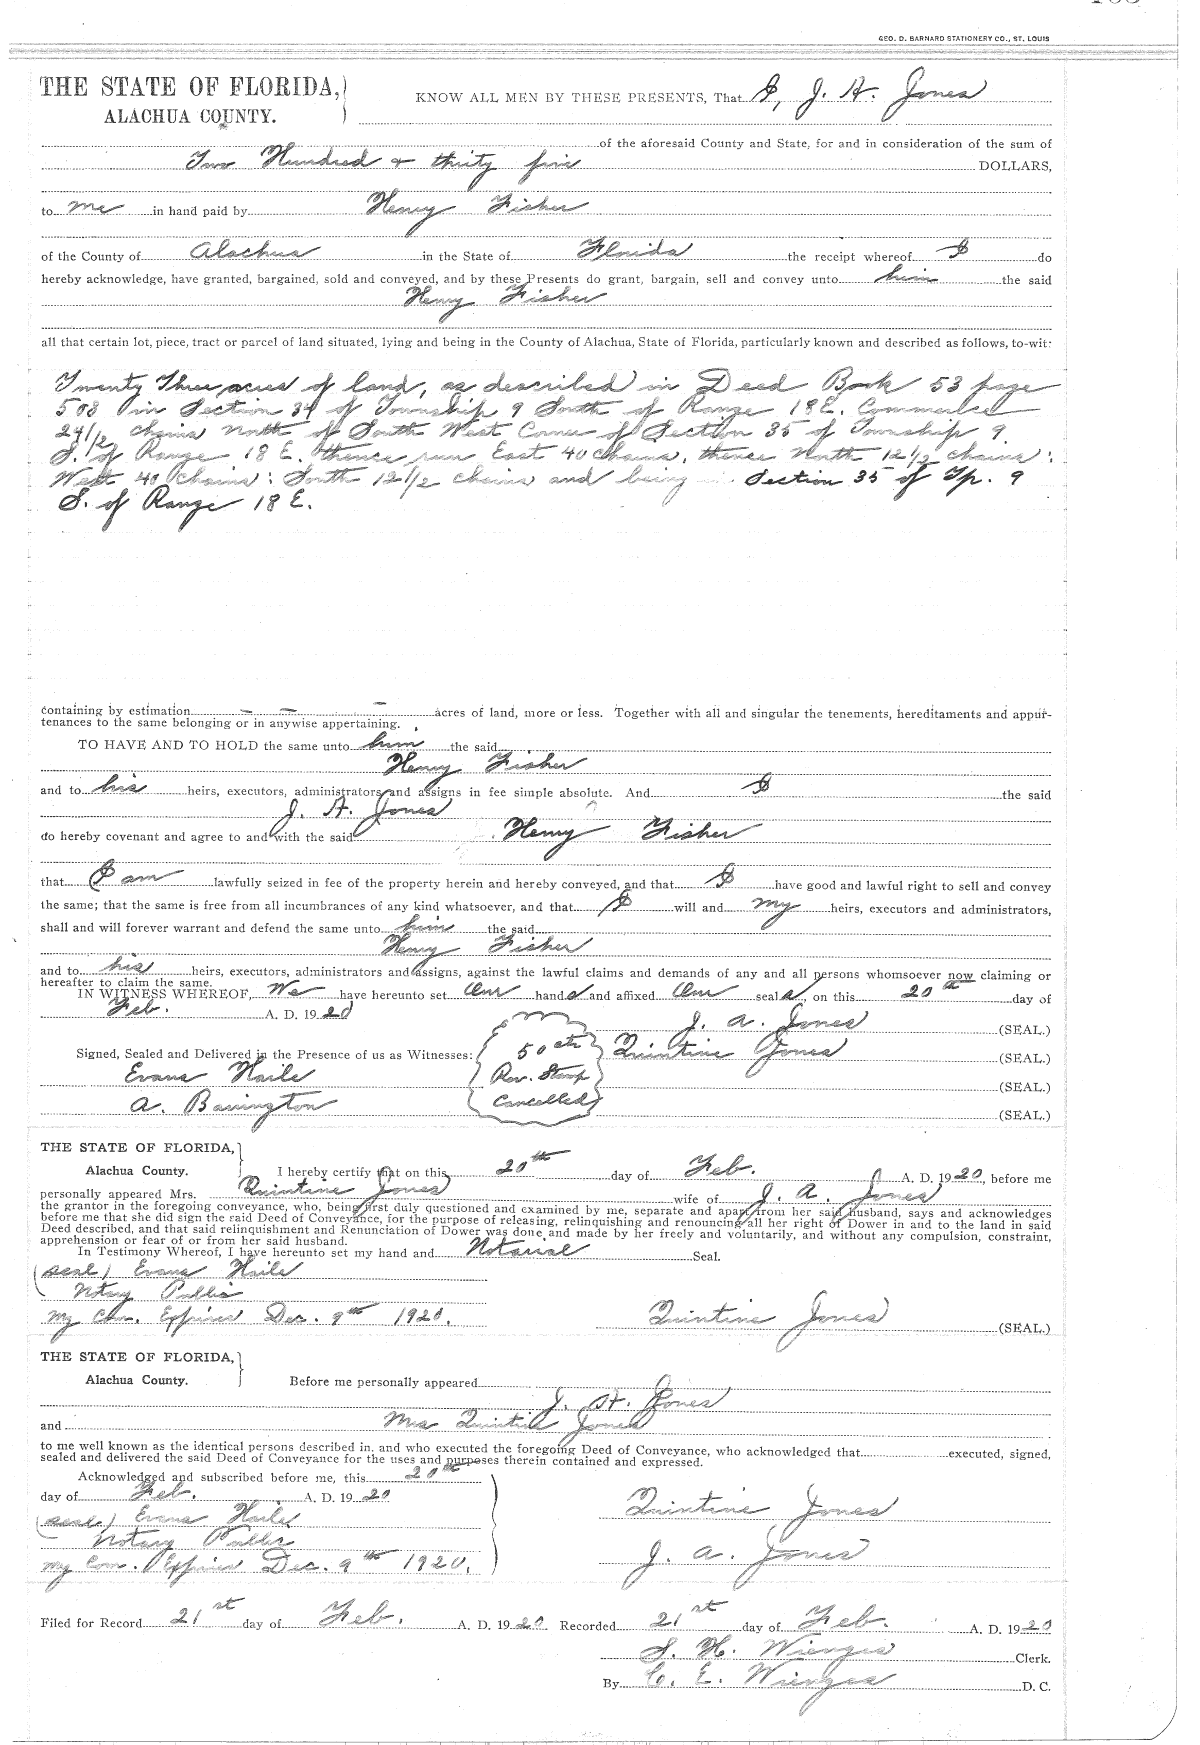 GEO. D. BARNARD STATIONERY CO., ST. LOUIS
THE STATE OF FLORIDA,
ALACHUA COUNTY.
KNOW ALL MEN BY THESE PRESENTS, That I, J. A. Jones
of the aforesaid County and State, for and in consideration of the sum of
Two Hundred & thirty five DOLLARS,
to me in hand paid by Henry Fisher
of the County of Alachua in the State of Florida the receipt whereof I do
hereby acknowledge, have granted, bargained, sold and conveyed, and by these Presents do grant, bargain, sell and convey unto him the said
Henry Fisher
all that certain lot, piece, tract or parcel of land situated, lying and being in the County of Alachua, State of Florida, particularly known and described as follows, to-wit:
Twenty Three acres of land, as described in Deed Book 53 page
508 in Section 34 of Township 9 South of Range 18 E. Commence
24 1/2 chains North of South West Corner of Section 35 of Township 9
S. of Range 18 E. thence run East 40 chains, thence North 12 1/2 chains:
West 40 chains: South 12 1/2 chains and being Section 35 of Tp. 9
S. of Range 18 E.
containing by estimation — — — acres of land, more or less. Together with all and singular the tenements, hereditaments and appur-
tenances to the same belonging or in anywise appertaining.
TO HAVE AND TO HOLD the same unto him the said
Henry Fisher
and to his heirs, executors, administrators and assigns in fee simple absolute. And I the said
J. A. Jones
do hereby covenant and agree to and with the said Henry Fisher
that I am lawfully seized in fee of the property herein and hereby conveyed, and that I have good and lawful right to sell and convey
the same; that the same is free from all incumbrances of any kind whatsoever, and that I will and my heirs, executors and administrators,
shall and will forever warrant and defend the same unto him the said
Henry Fisher
and to his heirs, executors, administrators and assigns, against the lawful claims and demands of any and all persons whomsoever now claiming or
hereafter to claim the same.
IN WITNESS WHEREOF, We have hereunto set Our hands and affixed Our seals, on this 20th day of
Feb. A. D. 1920
J. A. Jones (SEAL.)
Signed, Sealed and Delivered in the Presence of us as Witnesses: Quintine Jones (SEAL.)
50 cts
Rev. Stamp
Cancelled
Evans Haile (SEAL.)
A. Barrington (SEAL.)
THE STATE OF FLORIDA,
Alachua County. I hereby certify that on this 20th day of Feb. A. D. 1920, before me
personally appeared Mrs. Quintine Jones wife of J. A. Jones
the grantor in the foregoing conveyance, who, being first duly questioned and examined by me, separate and apart from her said husband, says and acknowledges
before me that she did sign the said Deed of Conveyance, for the purpose of releasing, relinquishing and renouncing all her right of Dower in and to the land in said
Deed described, and that said relinquishment and Renunciation of Dower was done and made by her freely and voluntarily, and without any compulsion, constraint,
apprehension or fear of or from her said husband.
In Testimony Whereof, I have hereunto set my hand and Notarial Seal.
(seal) Evans Haile
Notary Public
my Com. Expires Dec. 9th 1920.
Quintine Jones (SEAL.)
THE STATE OF FLORIDA,
Alachua County. Before me personally appeared
J. A. Jones
and Mrs Quintine Jones
to me well known as the identical persons described in, and who executed the foregoing Deed of Conveyance, who acknowledged that executed, signed,
sealed and delivered the said Deed of Conveyance for the uses and purposes therein contained and expressed.
Acknowledged and subscribed before me, this 20th
day of Feb. A. D. 1920
(seal) Evans Haile
Notary Public
my Com. Expires Dec. 9th 1920.
Quintine Jones
J. A. Jones
Filed for Record 21st day of Feb. A. D. 1920 Recorded 21st day of Feb. A. D. 1920
S. H. Wienges Clerk.
By C. E. Wienges D. C.